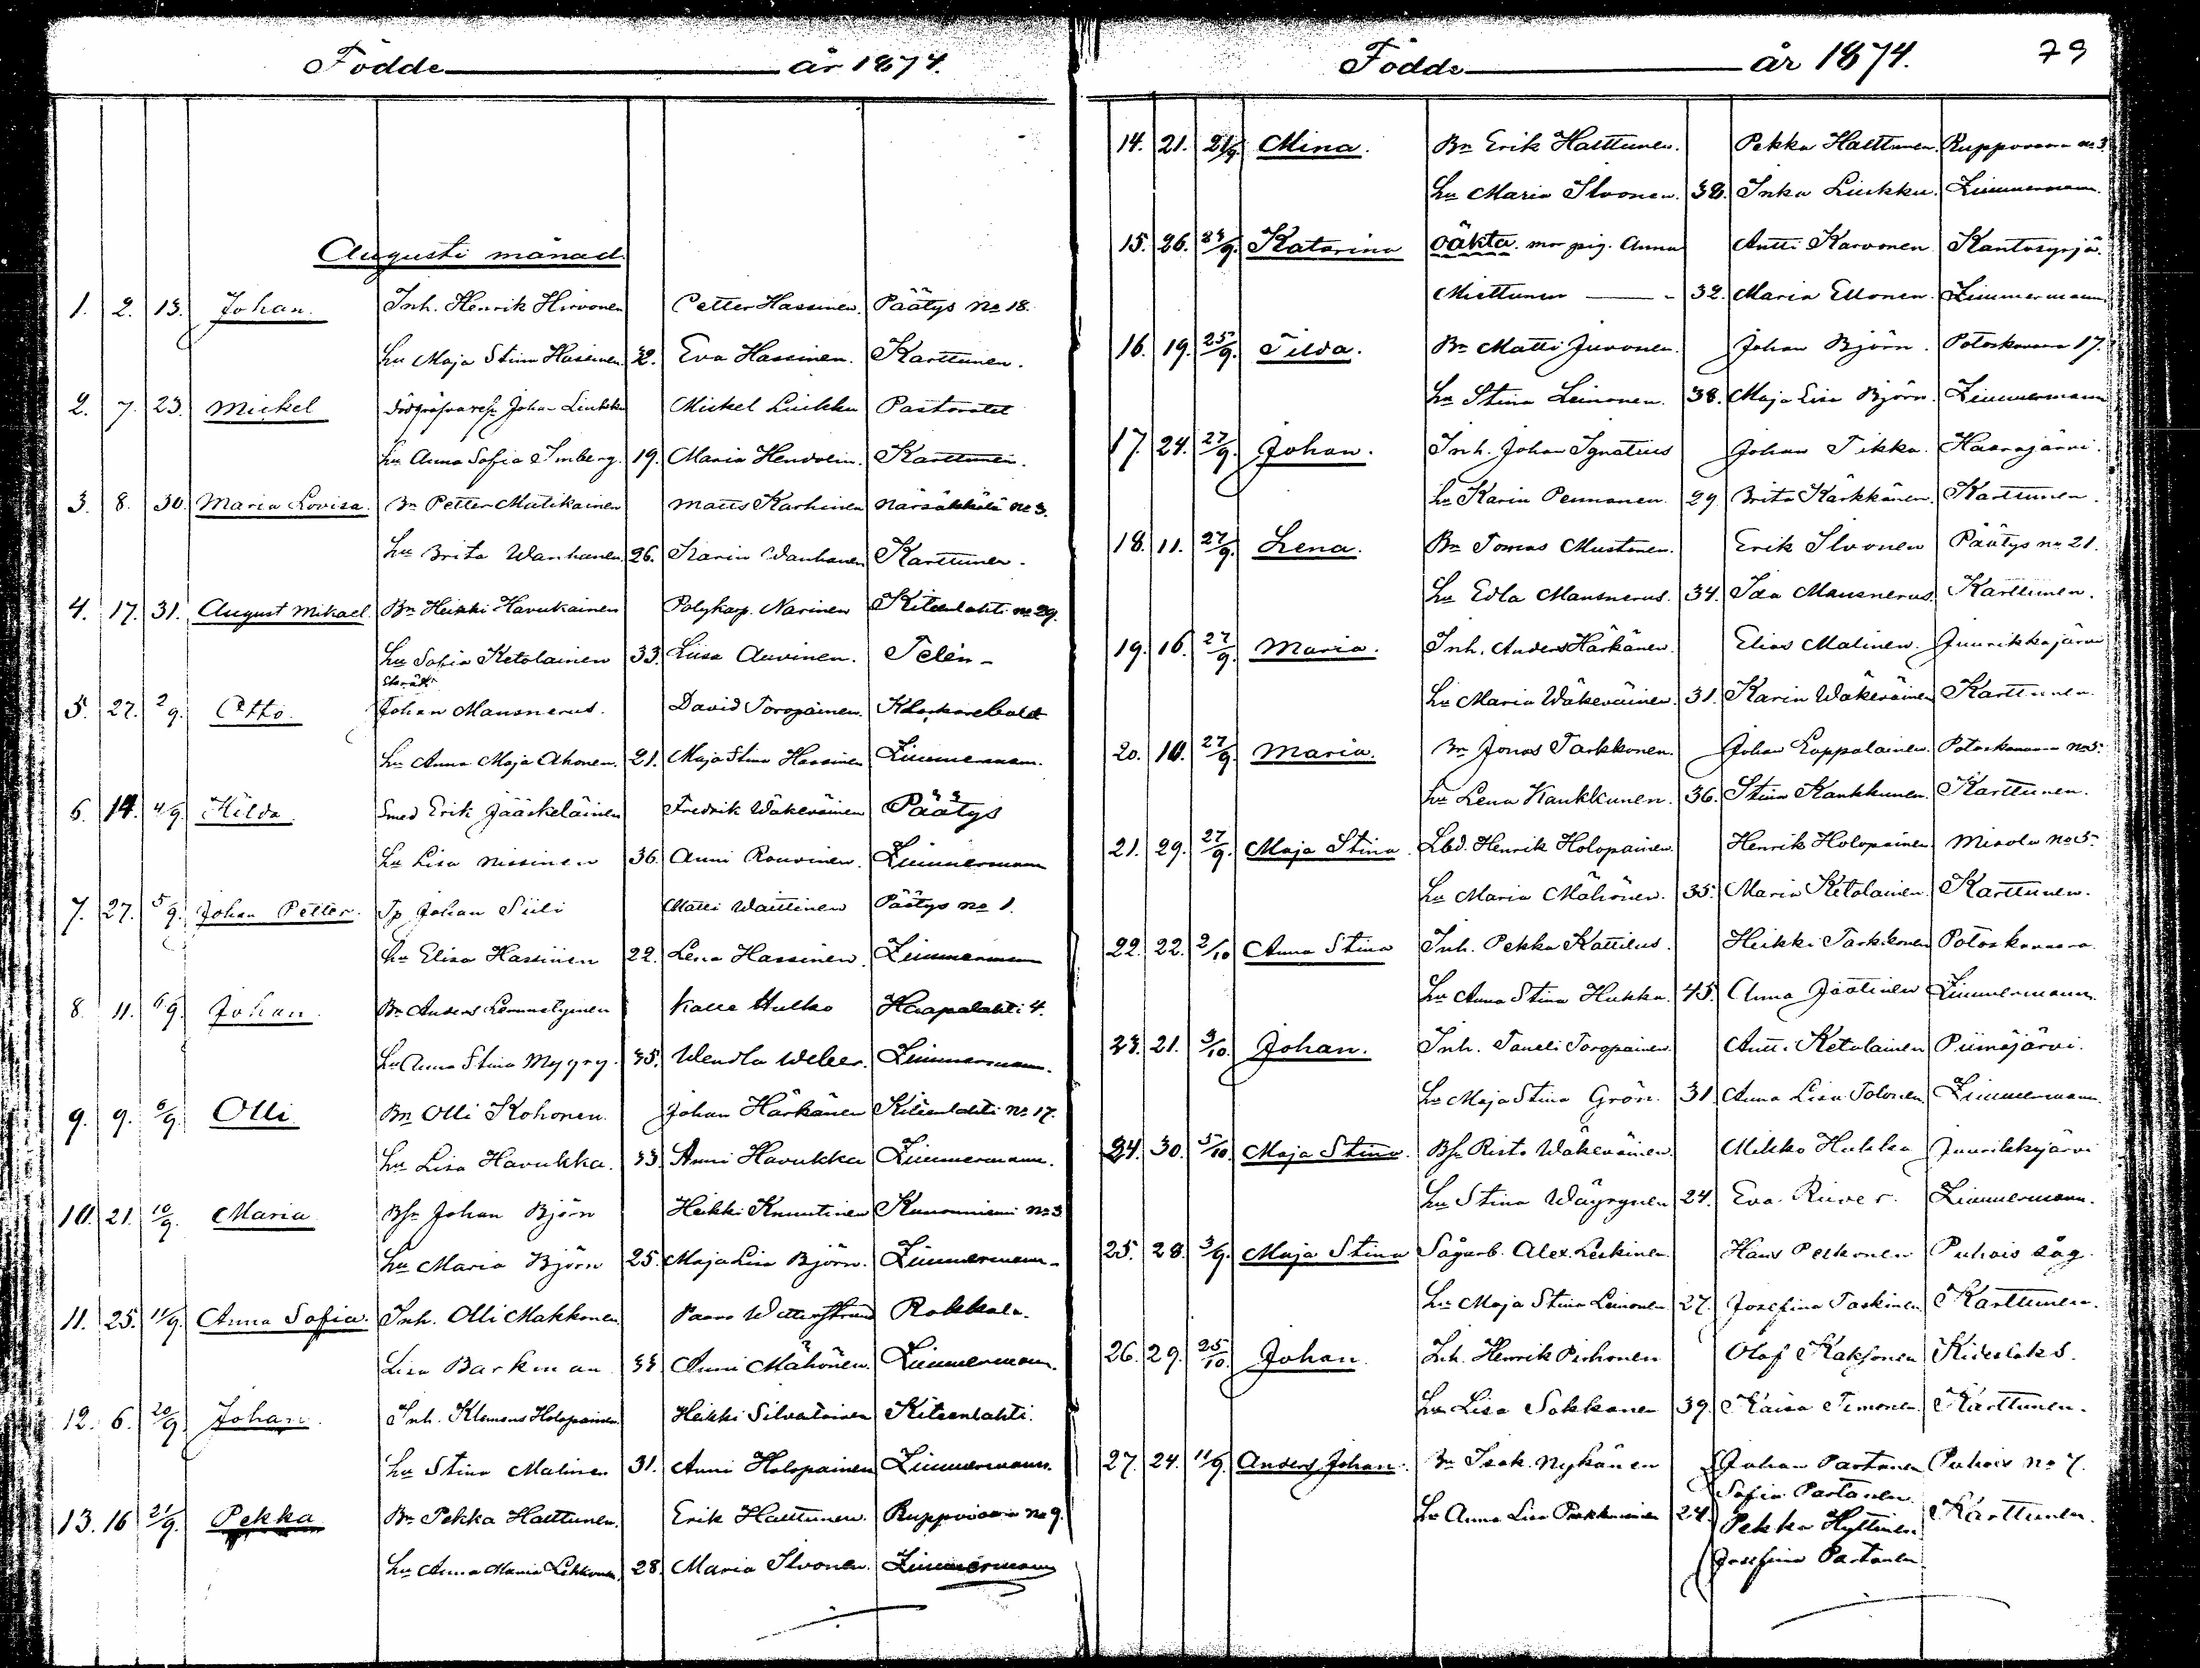 Födde år 1874.
Augusti månad.
1. 2. 13. Johan. Inh. Henrik Hirvonen Petter Hassinen. Päätys No 18.
hu Maja Stina Hassinen 32. Eva Hassinen. Karttunen.
2. 7. 23. Mickel Johan Linkko Mickel Linkko Pastoratet
hu Anna Sofia Imberg. 19. Maria Karttunen.
3. 8. 30. Maria Lovisa. Bn Petter Matikainen Matts Karhinen Närsäkkälä No 3.
hu Brita Wanhanen 26. Karin Wanhanen Karttunen.
4. 17. 31. August Mikael. Bn Heikki Havukainen Polykarp. Narinen Kiteenlahti no 29.
hu Sofia Ketolainen 33. Liisa Auvinen. Telén
5. 27. 2/9. Otto. Johan Mausnerus. David Toropainen.
hu Anna Maja Ahonen. 21. Maja Stina Hassinen Zimmermann.
6. 14. 4/9. Hilda. Smed Erik Jääskeläinen Fredrik Wäkeväinen Päätys
hu Lisa Nissinen 36. Anni Rouvinen. Zimmermann
7. 27. 5/9. Johan Petter. Tp Johan Siili Matti Waittinen Päätys no 1.
hu Elisa Hassinen 22. Lena Hassinen Zimmermann
8. 11. 6/9. Johan. Bn Anders Lemmetyinen Kalle Hulko Haapalahti 4.
hu Anna Stina Mygry. 35. Wendla Weber. Zimmermann.
9. 9. 6/9. Olli Bn Olli Kohonen. Johan Härkänen Kiteenlahti No 17.
hu Lisa Havukka. 33. Anni Havukka Zimmermann.
10. 21. 10/9. Maria Bsn Johan Björn Heikki Knuutinen Kunonniemi no 3
hu Maria Björn 25. Maja Lisa Björn. Zimmermann
11. 25. 11/9. Anna Sofia. Inh. Olli Makkonen Paavo Rokkala.
Lisa Barkman 33 Anni Mähönen. Zimmermann.
12. 6. 20/9. Johan. Inh. Klemens Holopainen Heikki Silvatoinen Kiteenlahti.
hu Stina Malinen 31. Anni Holopainen Zimmermann.
13. 16 21/9. Pekka Bn Pekka Hattunen. Erik Hattunen. Ruppovaara no 9.
hu Anna Maria Lehkonen 28. Maria Ilvonen. Zimmermann
Födde år 1874. 79
14. 21. 21/9. Mina. Bn Erik Hattunen. Pekka Hattunen. Ruppovaara no 3.
hu Maria Ilvonen. 38. Inka Linkko. Zimmermann.
15. 26. 23/9. Katarina oäkta. mor pig. Anna Antti Karvonen Kantosyrjä.
Miettunen 32. Maria Ellonen. Zimmermann.
16. 19. 25/9. Tilda. Bn Matti Juvonen. Johan Björn. Potoskavaara 17.
hu Stina Leinonen. 38. Maja Lisa Björn. Zimmermann
17. 24. 27/9. Johan. Inh. Johan Ignatius Johan Tikka. Haarajärvi.
hu Karin Pennanen. 29. Brita Karkkänen. Karttunen.
18. 11. 27/9. Lena. Bn Tomas Mustonen. Erik Ilvonen Päätys no 21.
hu Edla Mausnerus. 34. Ida Mausnerus. Karttunen.
19. 16. 27/9. Maria. Inh. Anders Härkänen. Elias Malinen. Juurikkajärvi
hu Maria Wäkeväinen. 31. Karin Wäkeväinen Karttunen.
20. 10. 27/9. Maria. Bn Jonas Tarkkonen. Johan Lappalainen. Potoskavaara no 5.
hu Lena Kaukkunen. 36. Stina Kaukkunen. Karttunen.
21. 29. 27/9. Maja Stina Lbd. Henrik Holopainen. Henrik Holopainen Misola no 5.
hu Maria Mähönen. 35. Maria Ketolainen. Karttunen.
22. 22. 2/10 Anna Stina Inh. Pekka Kattilus. Heikki Tarkkonen Potoskavaara.
hu Anna Stina Hukka. 45. Anna Jäätinen Zimmermann.
23. 21. 3/10. Johan. Inh. Taneli Toropainen. Antti Ketolainen Piimäjärvi.
hu Maja Stina Grön. 31. Anna Lisa Tolonen. Zimmermann.
24. 30. 5/10. Maja Stina. Bsn Risto Wäkeväinen. Mikko Hukka Juurikkajärvi
hu Stina Wäyrynen 24. Eva Zimmermann.
25. 28. 3/9. Maja Stina Sågarb. Alex. Leskinen. Hans Pelkonen Puhois såg.
hu Maja Stina Leinonen 27. Josefina Taskinen. Karttunen.
26. 29. 25/10. Johan. Inh. Henrik Pirhonen Olof Kaksonen Kideslaks.
hu Lisa Sakkanen 39. Kaisa Timonen Karttunen.
27. 24. 11/9. Anders Johan. Bn Isak. Nykänen Johan Partanen Puhois No 7.
Sofia Partanen.
hu Anna Lisa 24. Pekka Hyttinen Karttunen.
Josefina Partanen.